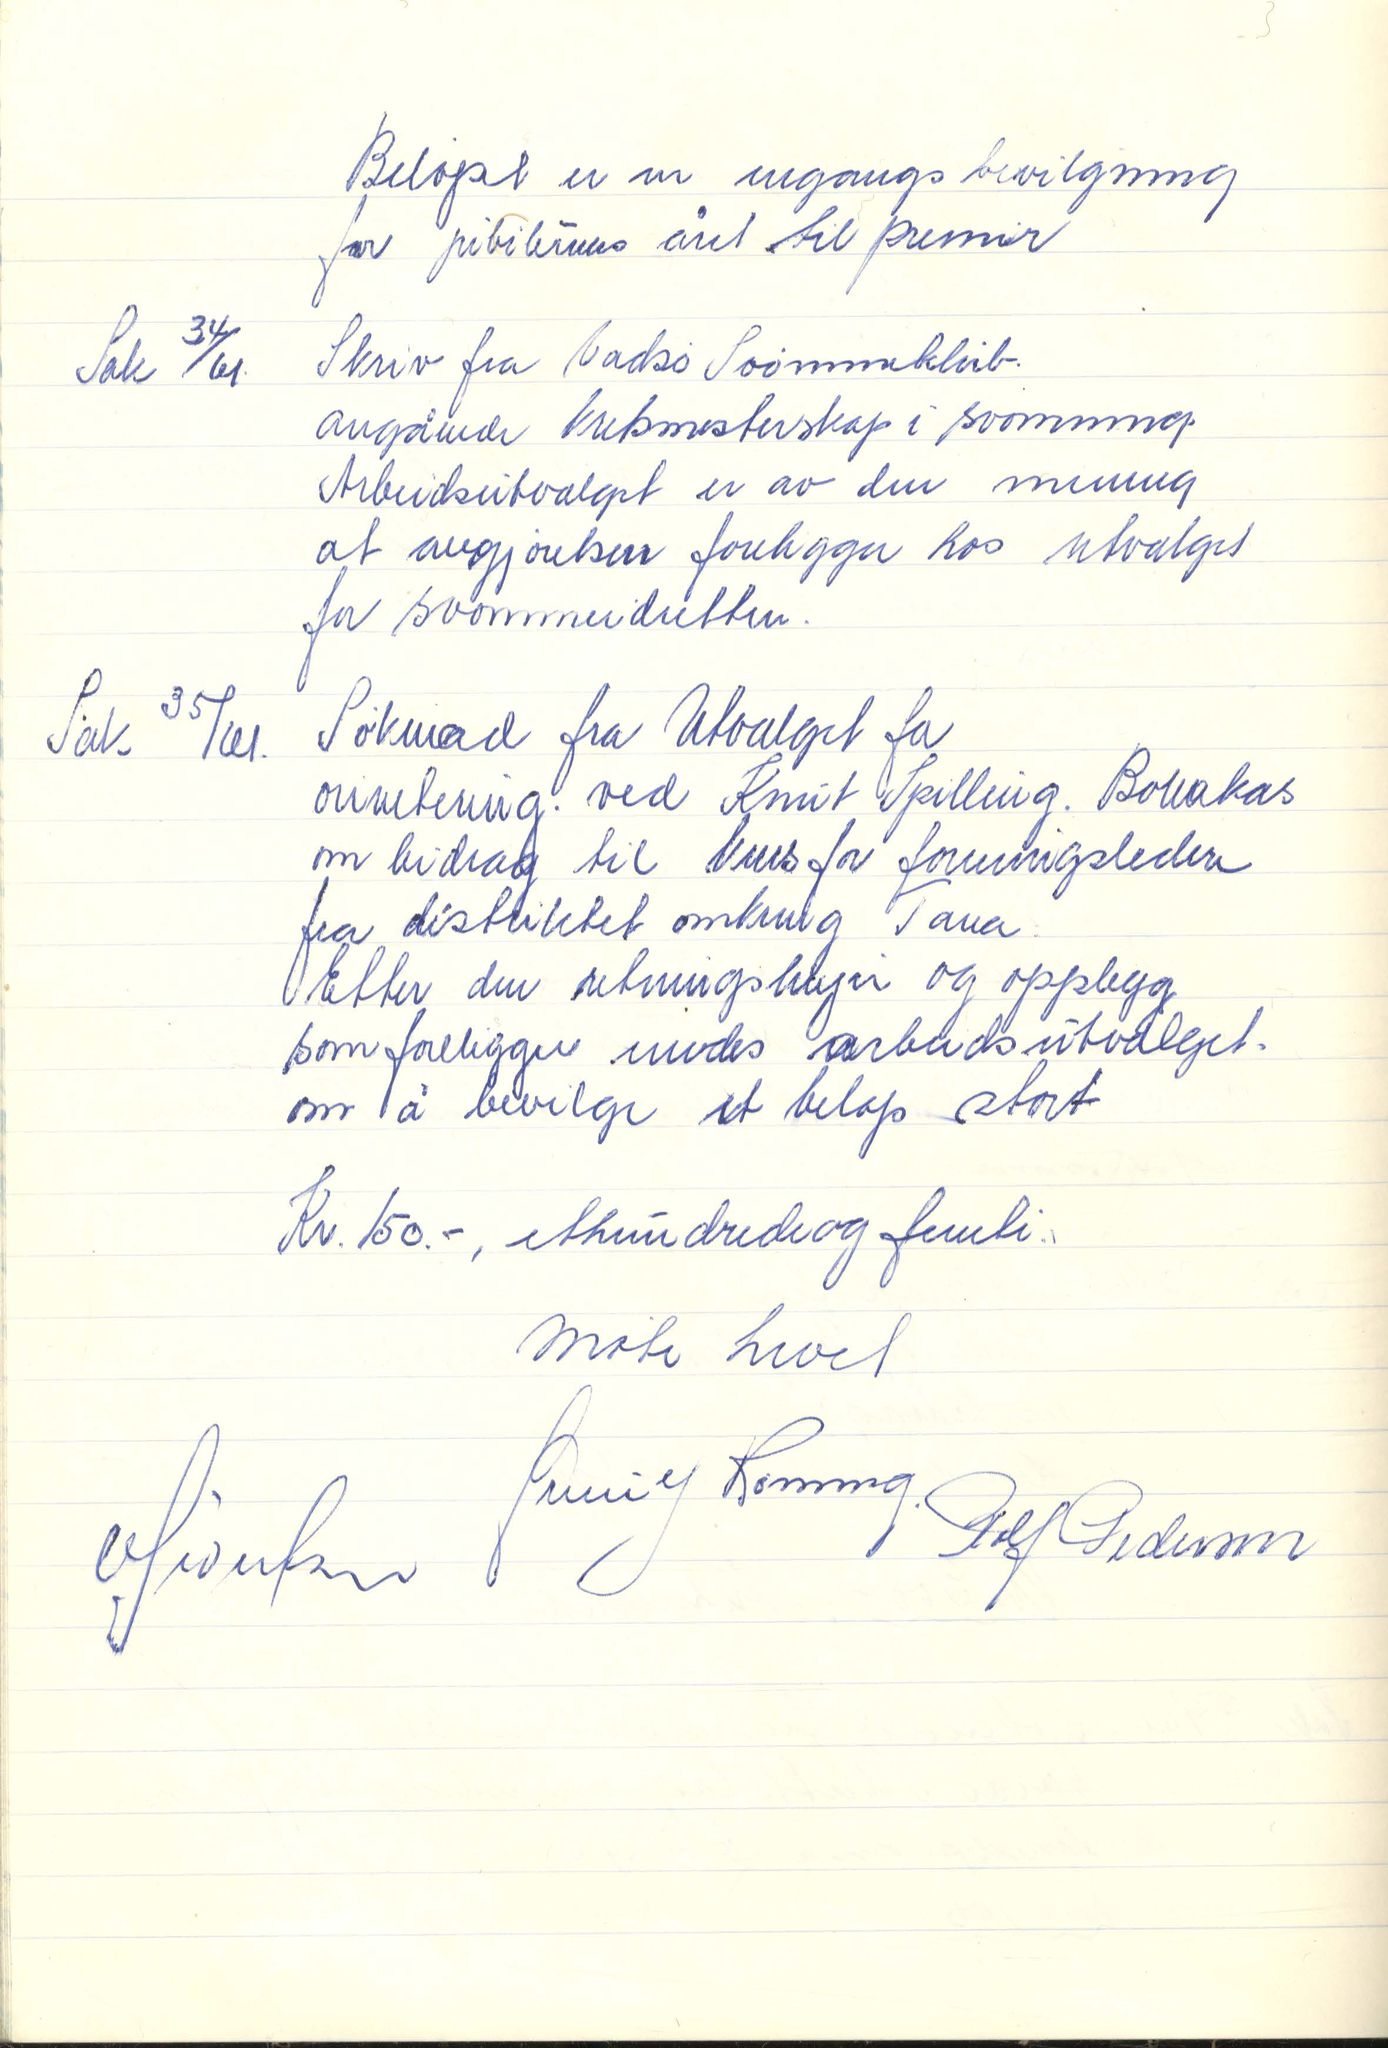 Beløpet er en engangs bevilgning
for jubileums året til premier
Sak 34/61. Skriv fra Vadsø Svømmeklub.
angående kretsmesterskap i svømming
Arbeidsutvalget er av den mening
at avgjørelsen foreligger hos utvalget
for svømmeidretten.
Sak 35/61. Søknad fra Utvalget for
orientering. ved Knut Spilling. Bonakas
om bidrag til kurs for foreningsledere
fra distriktet omkring Tana.
Etter den retningslinjer og opplegg
som foreligger enedes arbeidsutvalget.
om å bevilge et beløp stort
Kr. 150.-, etthundredeogfemti.
Møte hevet
Rønning. Rolf Pedersen